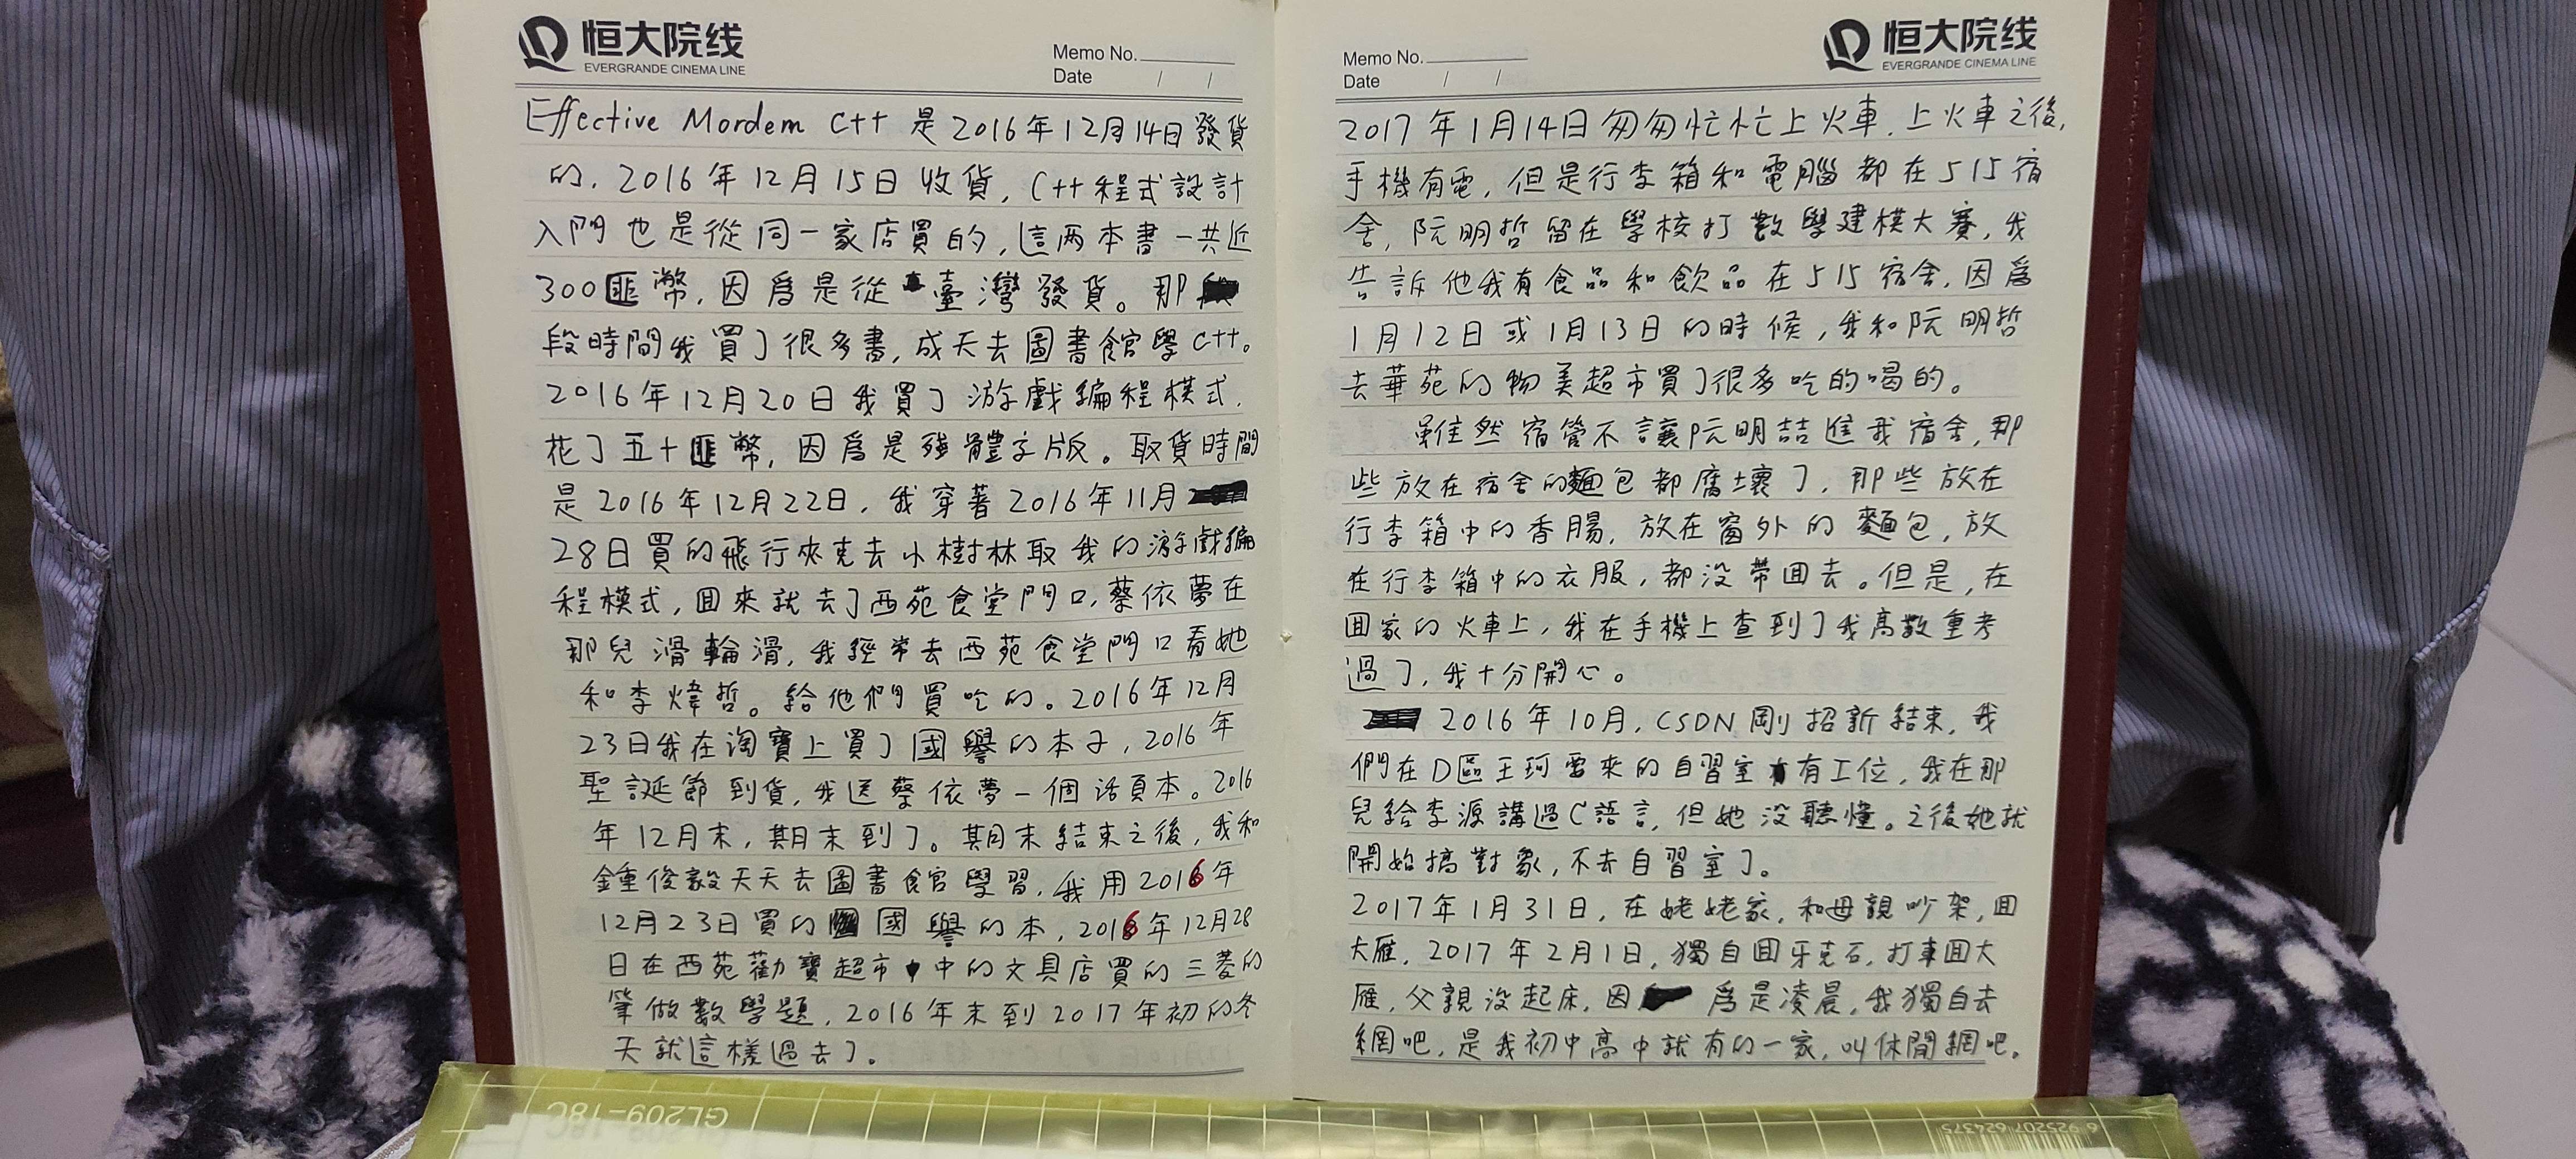 恒大院线
EVERGRANDE CINEMA LINE
Memo No.
Date / /
Effective Mordem C++ 是2016年12月14日發貨
的，2016年12月15日收貨，C++程式設計
入門也是從同一家店買的，這两本書一共近
300匪幣，因爲是從臺灣發貨。那
段時間我買了很多書，成天去圖書館學C++。
2016年12月20日我買了游戲編程模式，
花了五十匪幣，因爲是殘體字版。取貨時間
是2016年12月22日，我穿著2016年11月
28日買的飛行夾克去小樹林取我的游戲編
程模式，囬來就去了西苑食堂門口，蔡依夢在
那兒滑輪滑，我經常去西苑食堂門口看她
和李煒哲。給他們買吃的。2016年12月
23日我在淘寶上買了國譽的本子，2016年
聖誕節到貨，我送蔡依夢一個活頁本。2016
年12月末，期末到了。期末結束之後，我和
鍾俊毅天天去圖書館學習，我用2016年
12月23日買的國譽的本，2016年12月28
日在西苑勸寶超市中的文具店買的三菱的
筆做數學題，2016年末到2017年初的冬
天就這樣過去了。
恒大院线
EVERGRANDE CINEMA LINE
Memo No.
Date / /
2017年1月14日匆匆忙忙上火車，上火車之後，
手機有電，但是行李箱和電腦都在515宿
舍，阮明哲留在學校打數學建模大賽，我
告訴他我有食品和飲品在515宿舍，因爲
1月12日或1月13日的時候，我和阮明哲
去華苑的物美超市買了很多吃的喝的。
雖然宿管不讓阮明喆進我宿舍，那
些放在宿舍的麵包都腐壞了，那些放在
行李箱中的香腸，放在窗外的麵包，放
在行李箱中的衣服，都没帶囬去。但是，在
囬家的火車上，我在手機上查到了我高數重考
過了，我十分開心。
2016年10月，CSDN剛招新結束，我
們在D區王珂雷來的自習室有工位，我在那
兒給李源講過C語言，但她没聽懂。之後她就
開始搞對象，不去自習室了。
2017年1月31日，在姥姥家，和母親吵架，囬
大雁，2017年2月1日，獨自囬牙克石，打車囬大
雁，父親没起床，因爲是凌晨，我獨自去
網吧，是我初中高中就有的一家，叫休閒網吧。
GL209-18C
6 925207 624375